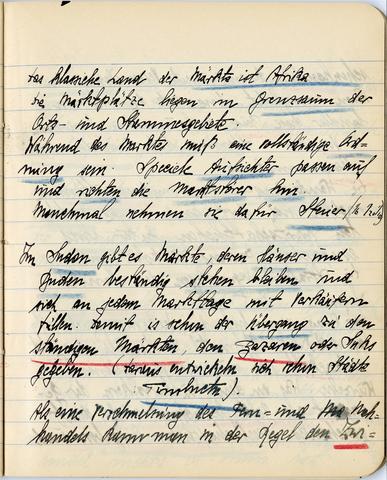 Das klassische Land der Märkte ist Afrika
Die Marktplätze liegen im Grenzraum der
Orts- und Stammesgebiete.
Während des Marktes muß eine vollständige Ord-
nung sein. Speciele Aufsichter passen auf
und richten die Marktstörer hin.
Manchmal nehmen sie dafür Steuer
Im Sudan gibt es Märkte, deren Häuser und
Buden beständig stehen bleiben und
sich an jedem Markttage mit Verkäufern
füllen. Damit is schon der Übergang zu den
ständigen Märkten, den Bazaren oder Suks
gegeben. (Daraus entwickeln sich schon Städte
Timbuctu).
Als eine Verschmelzung des Fern- und des Nah-
handels kann man in der Regel den Zwi-